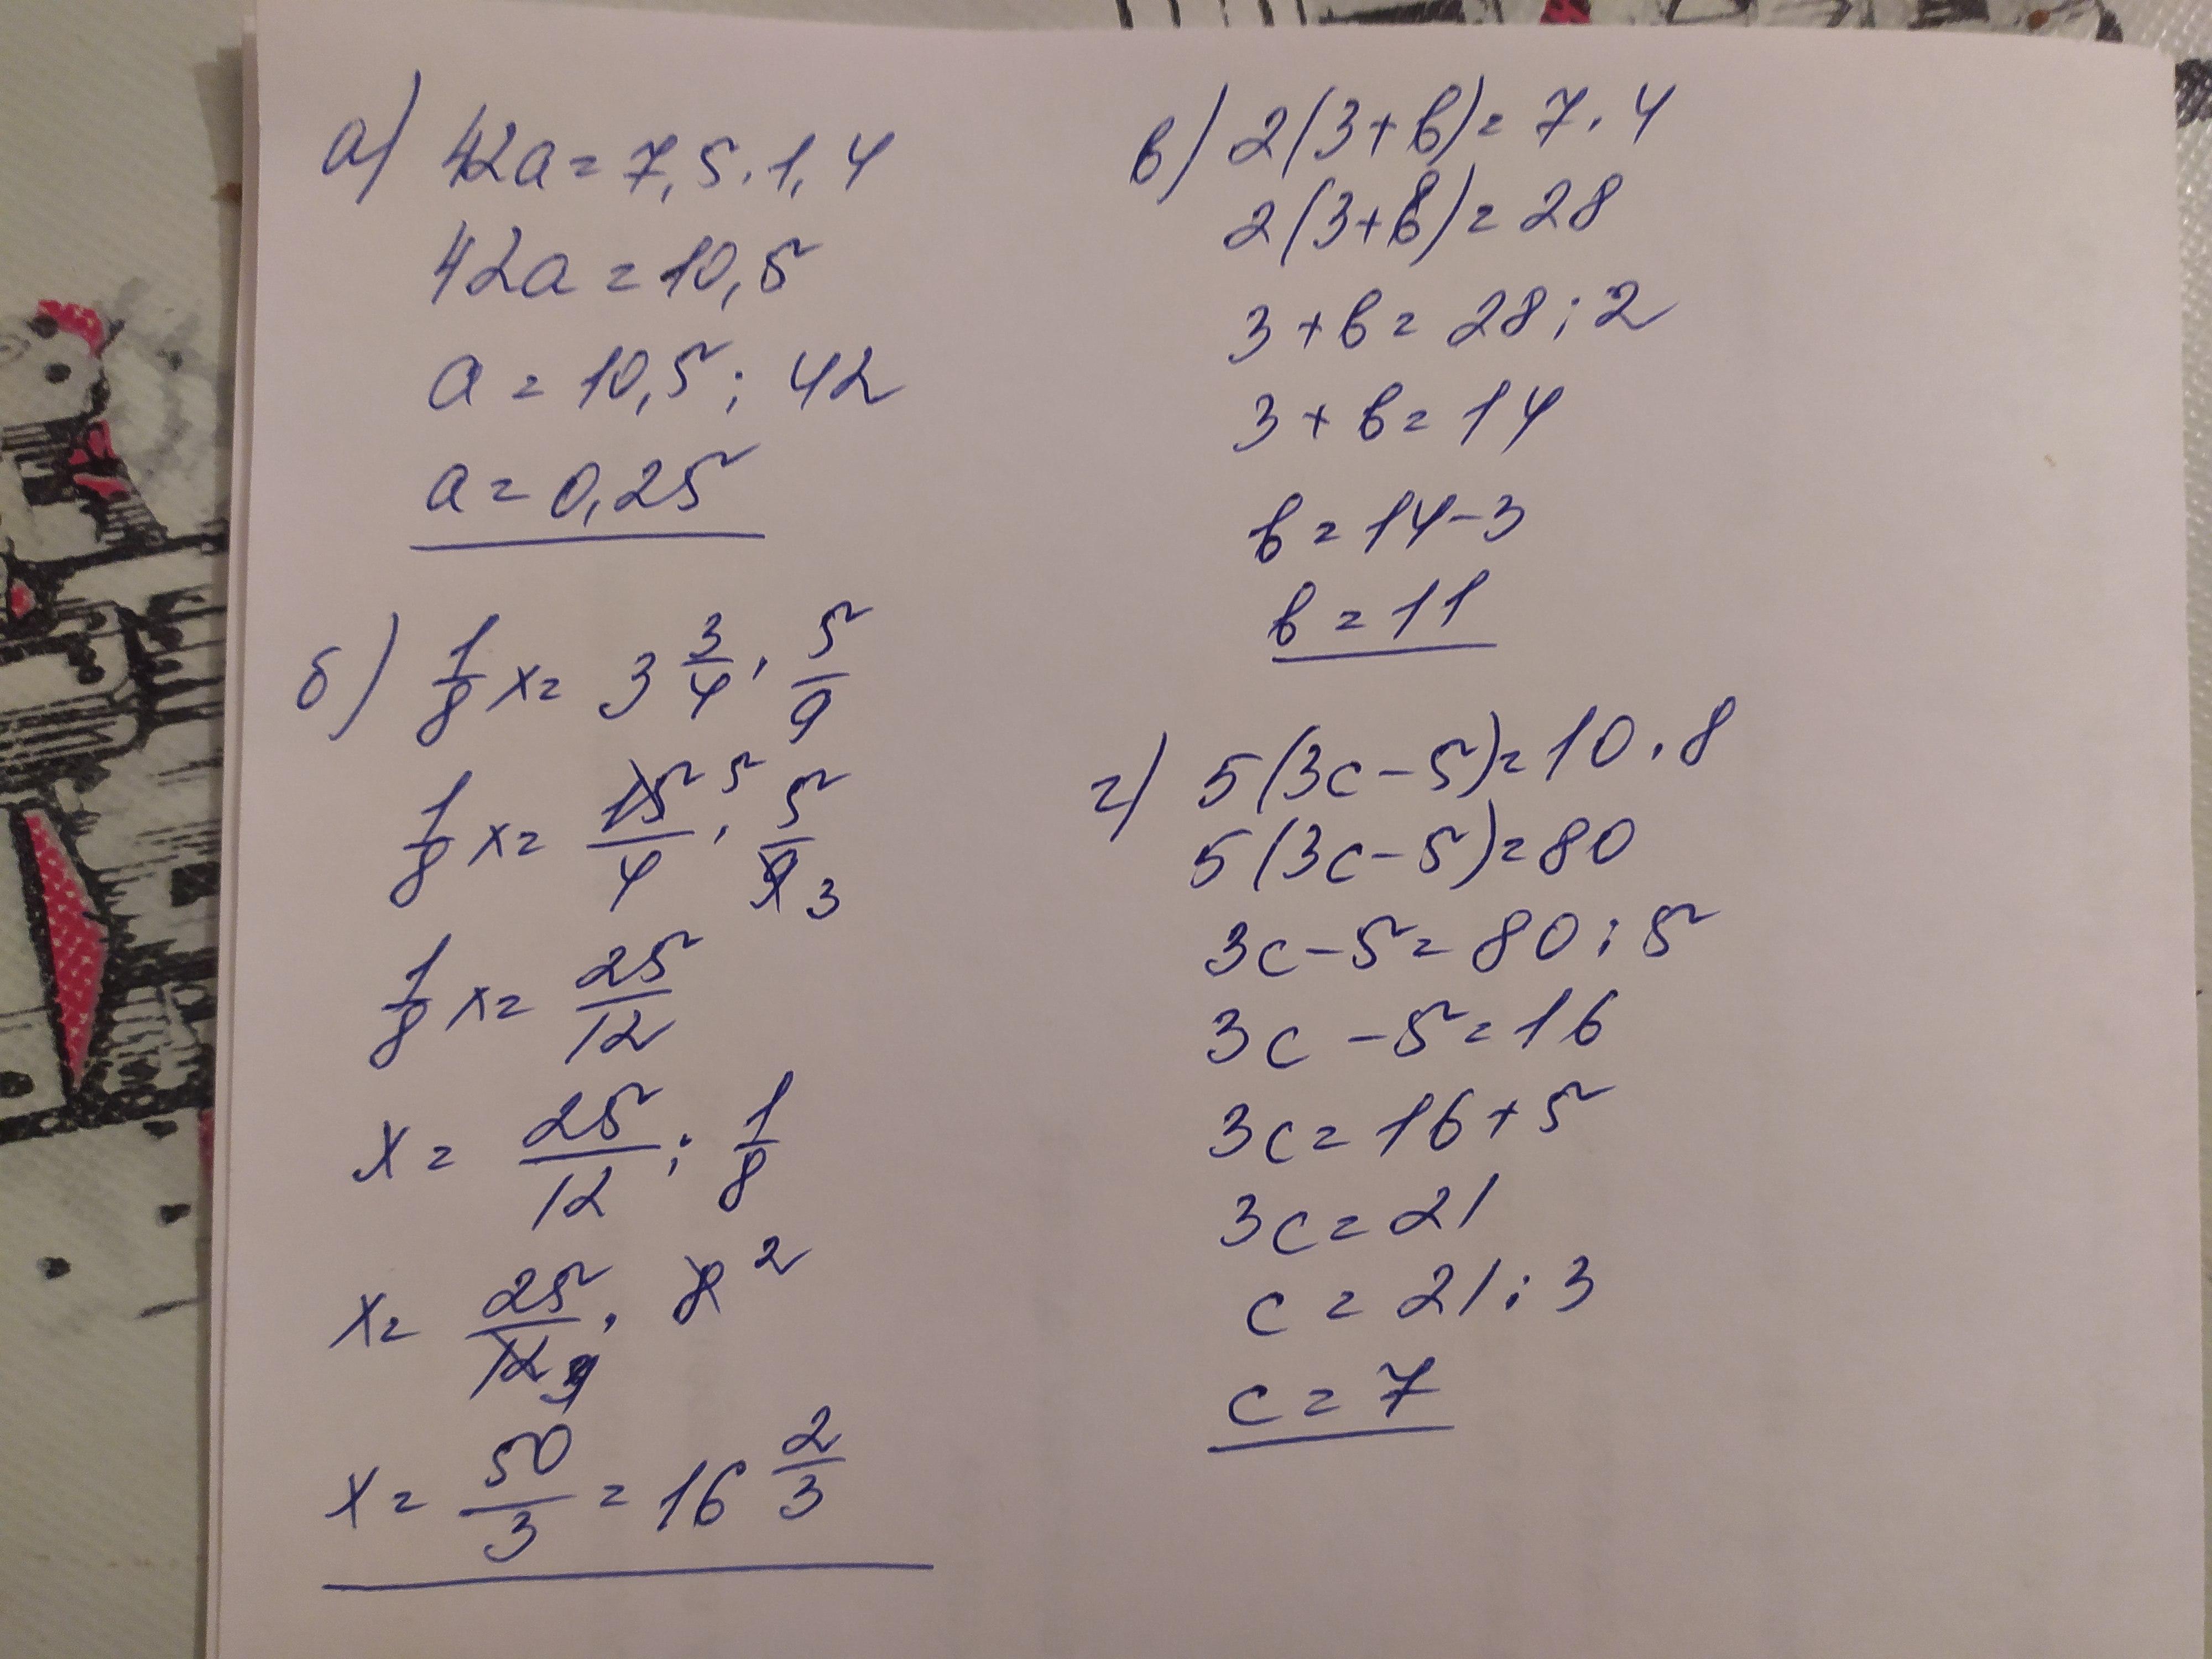 а) 42a = 7,5 · 1,4
42a = 10,5
a = 10,5 : 42
a = 0,25
б) 1/8 x = 3 3/4 · 5/9
1/8 x = 15/4 5 · 5/9 3
1/8 x = 25/12
x = 25/12 : 1/8
x = 25/12 3 · 8 2
x = 50/3 = 16 2/3
в) 2(3+в) = 7 · 4
2(3+в) = 28
3 + в = 28 : 2
3 + в = 14
в = 14 - 3
в = 11
г) 5(3c - 5) = 10 · 8
5(3c - 5) = 80
3c - 5 = 80 : 5
3c - 5 = 16
3c = 16 + 5
3c = 21
c = 21 : 3
c = 7